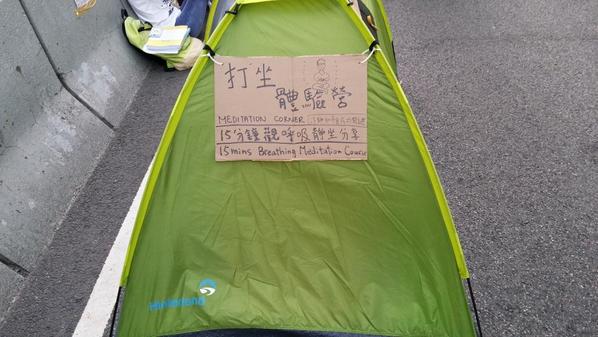 打坐
體驗營
MEDITATION CORNER
15分鐘觀呼吸靜坐分享
15mins Breathing Meditation